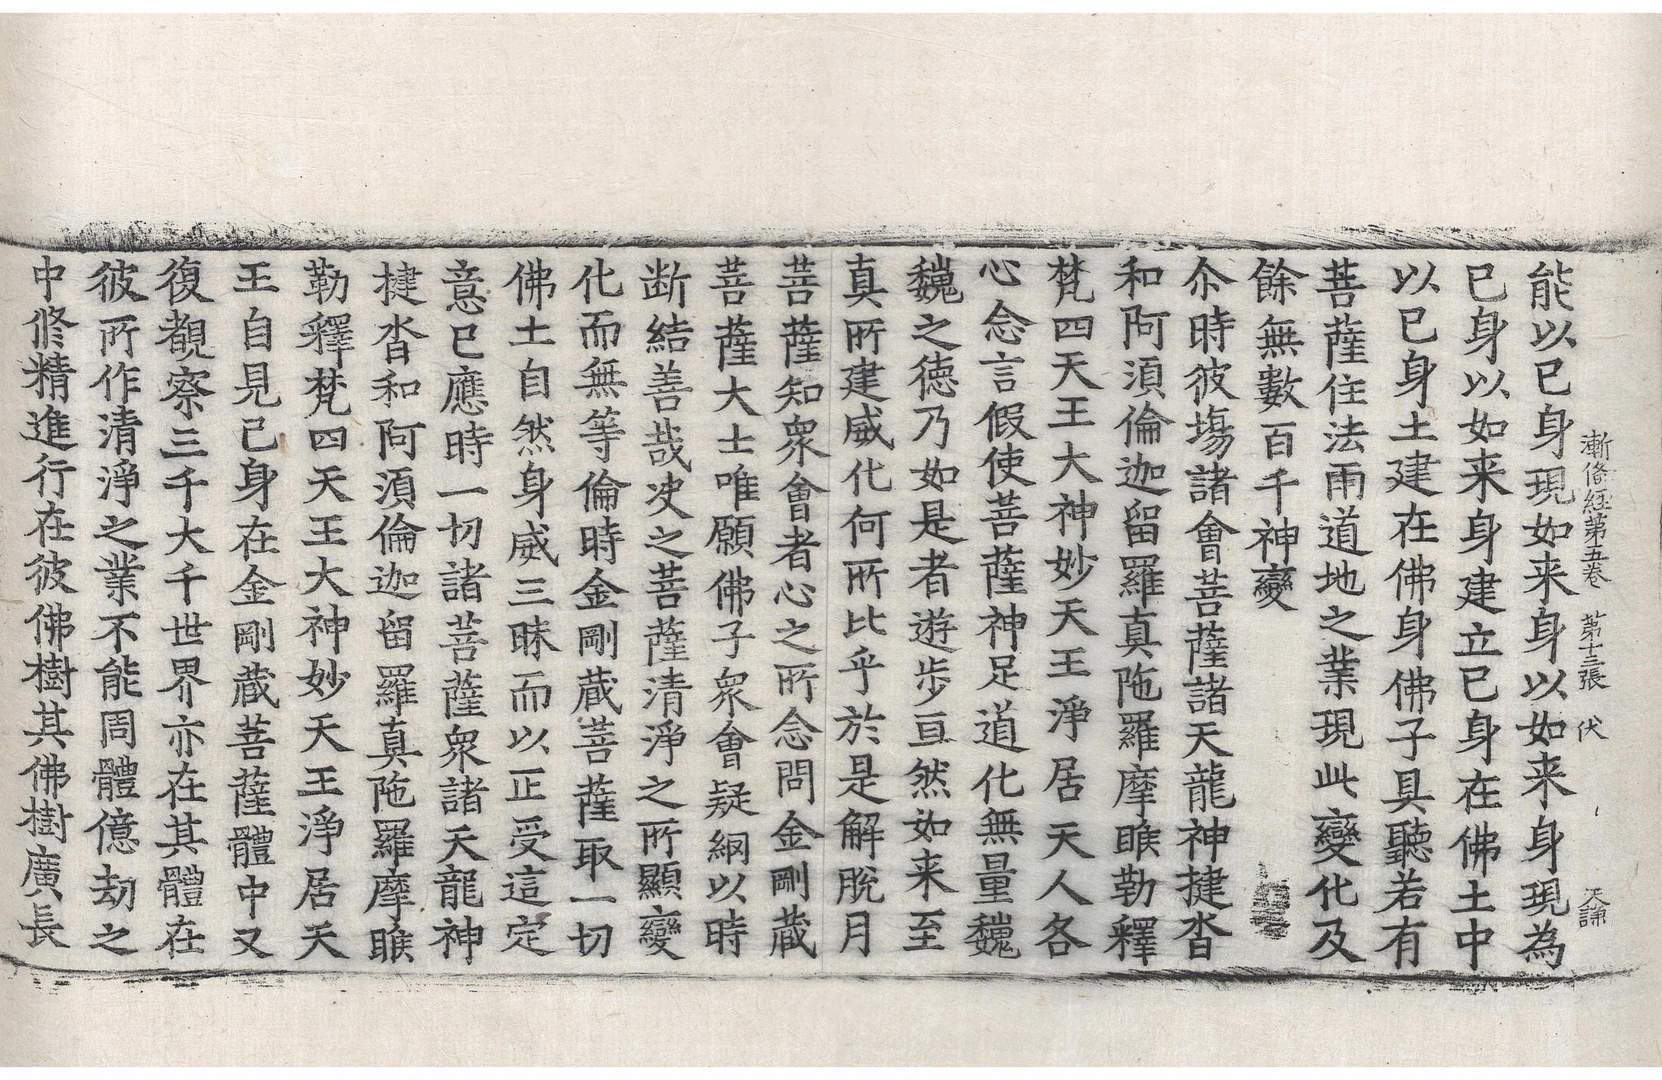 漸備經第五卷　第十三張　伏　天謙
能以已身現如来身以如来身現為
已身以如来身建立已身在佛土中
以已身土建在佛身佛子具聽若有
菩薩住法雨道地之業現此變化及
餘無數百千神變
尒時彼塲諸會菩薩諸天龍神揵沓
和阿湏倫迦留羅真陁羅摩睺勒釋
梵四天王大神妙天王淨居天人各
心念言假使菩薩神足道化無量魏
魏之德乃如是者遊步亘然如来至
真所建威化何所比乎於是解脫月
菩薩知衆會者心之所念問金剛蔵
菩薩大士唯願佛子衆會疑網以時
断結善哉决之菩薩清淨之所顯變
化而無等倫時金剛蔵菩薩取一切
佛土自然身威三昧而以正受這定
意已應時一切諸菩薩衆諸天龍神
揵沓和阿湏倫迦留羅真陁羅摩睺
勒釋梵四天王大神妙天王淨居天
王自見已身在金剛蔵菩薩體中又
復覩察三千大千世界亦在其體在
彼所作清淨之業不能周體億劫之
中修精進行在彼佛樹其佛樹廣長